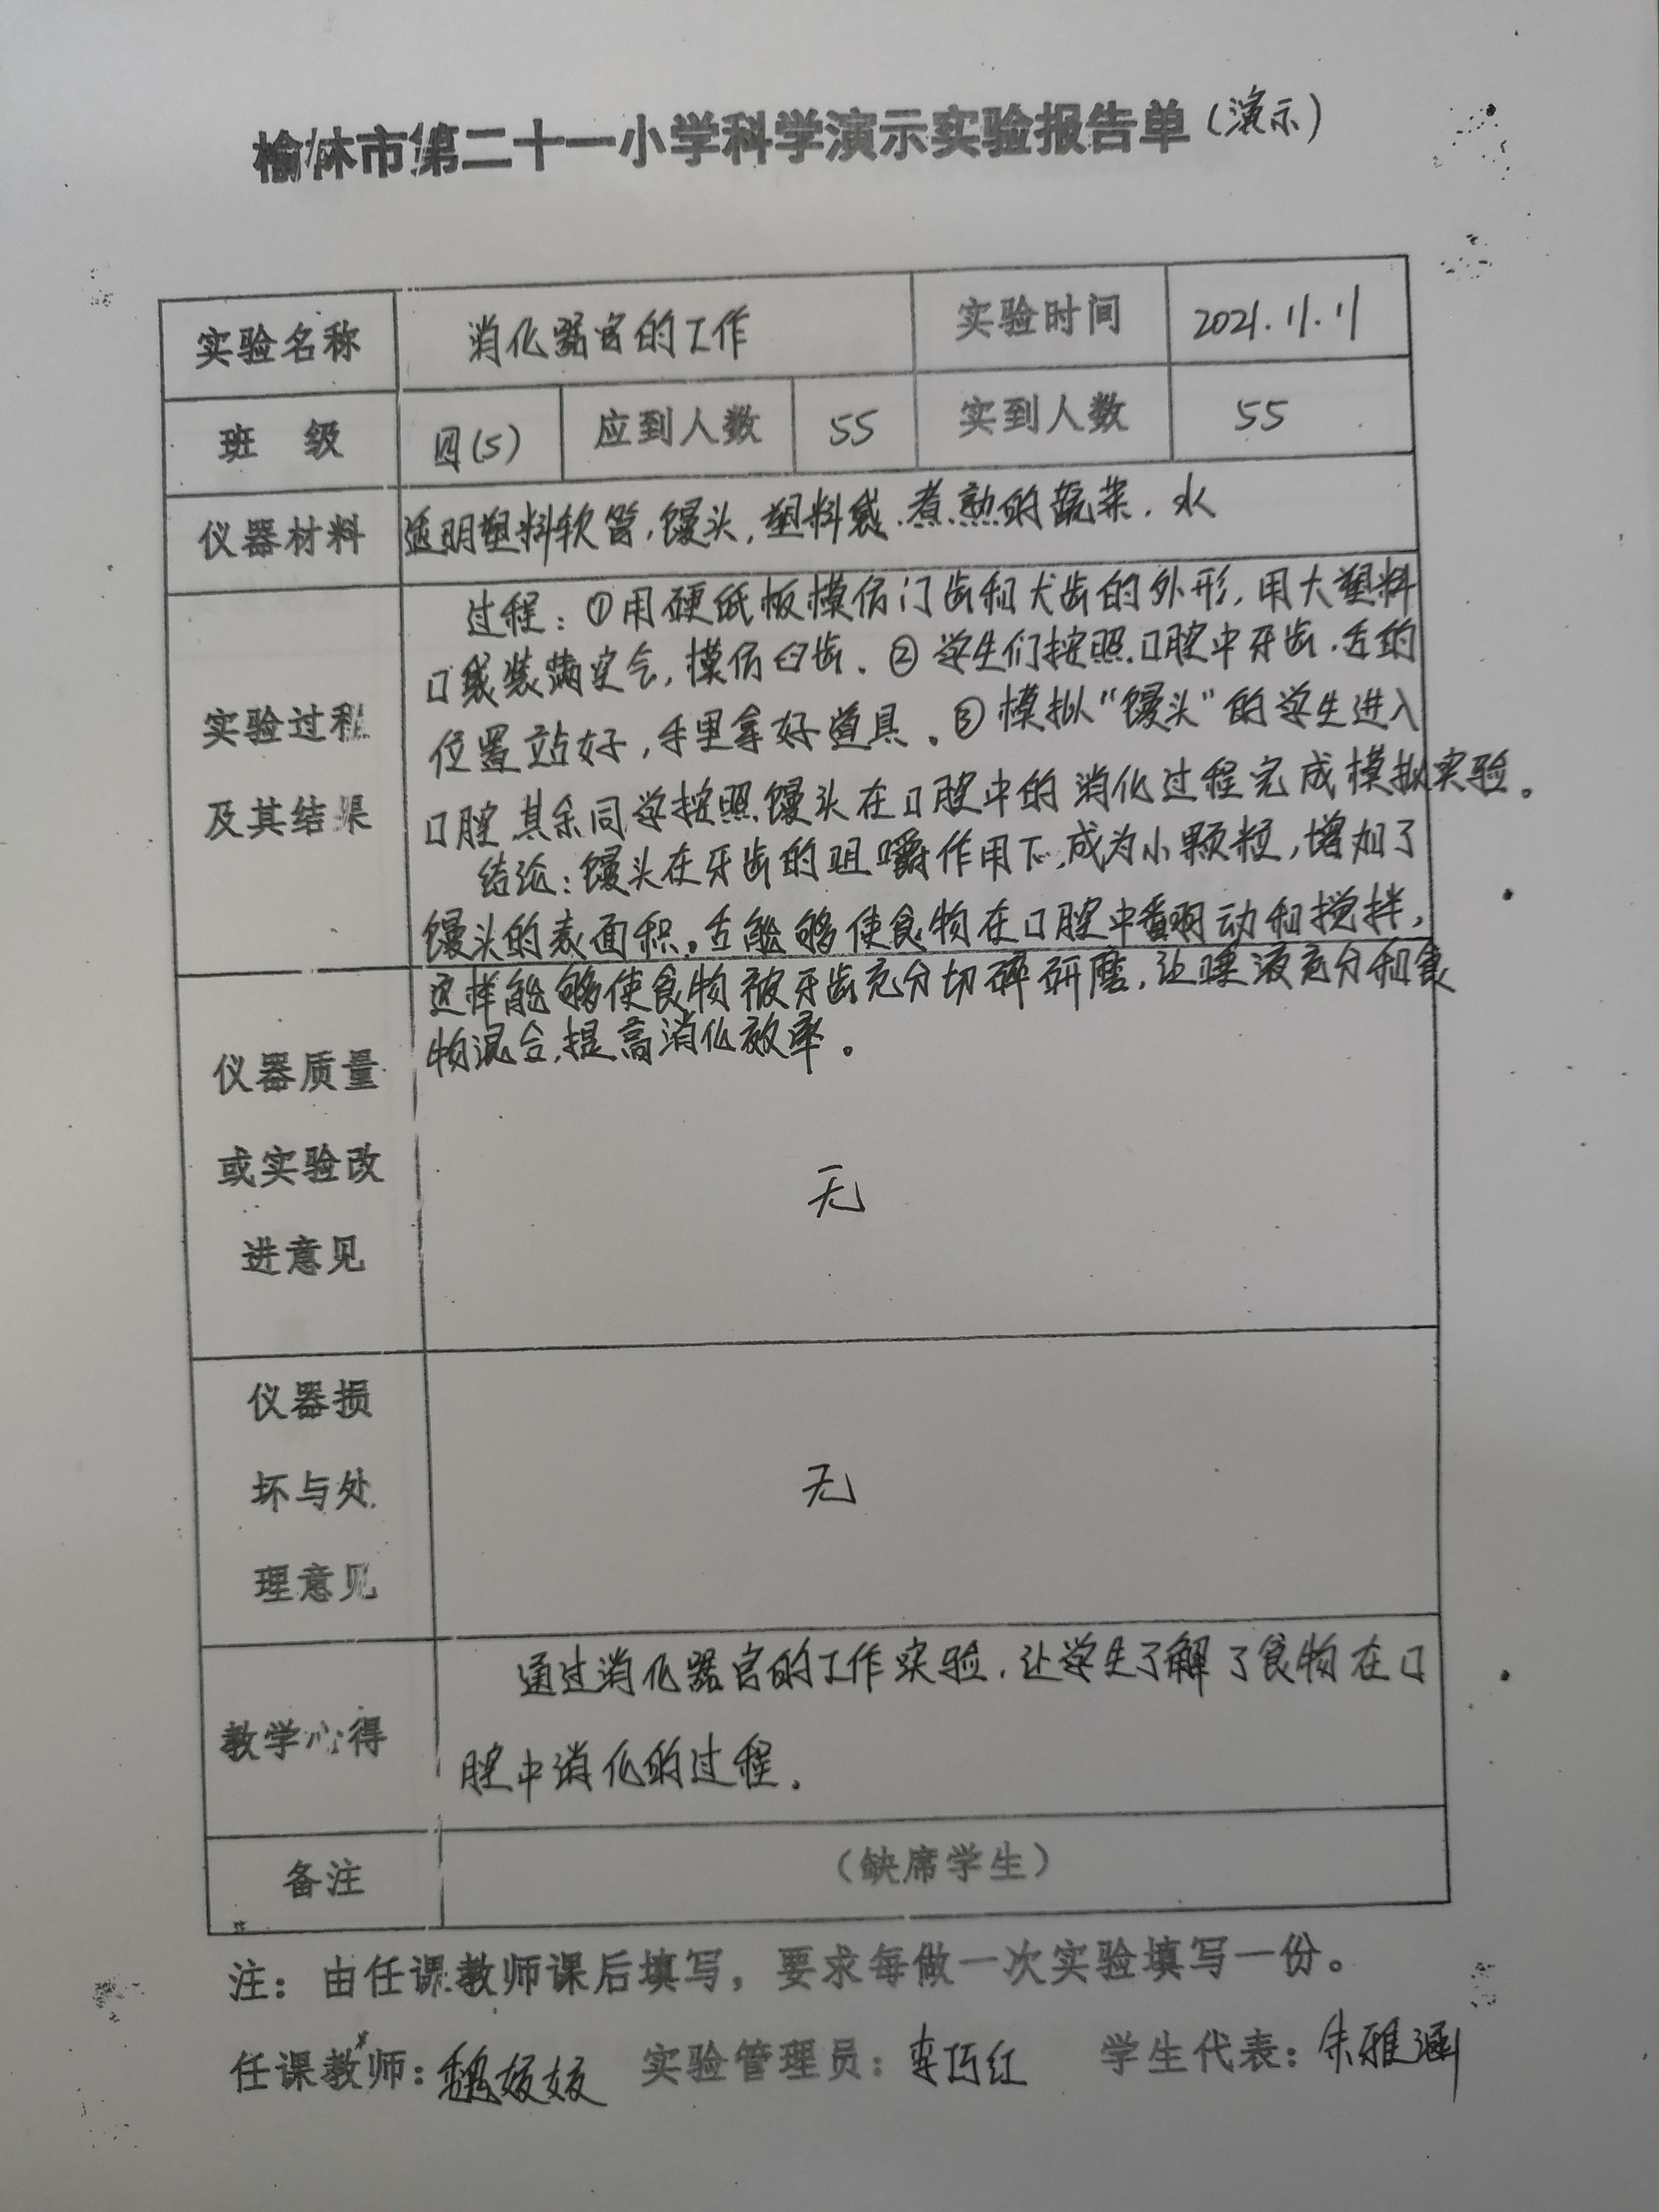 榆林市第二十一小学科学演示实验报告单(演示)
实验名称 消化器官的工作 实验时间 2021.11.11
班 级 四(5) 应到人数 55 实到人数 55
仪器材料 透明塑料软管,馒头,塑料袋.煮熟的蔬菜.水
过程:①用硬纸板模仿门齿和犬齿的外形,用大塑料
口袋装满空气,模仿臼齿.②学生们按照口腔中牙齿.舌的
位置站好,手里拿好道具.③模拟“馒头”的学生进入
实验过程
口腔.其余同学按照馒头在口腔中的消化过程完成模拟实验。
及其结果
结论:馒头在牙齿的咀嚼作用下,成为小颗粒,增加了
馒头的表面积。舌能够使食物在口腔中翻动和搅拌,
这样能够使食物被牙齿充分切碎研磨,让唾液充分和食
物混合,提高消化效率。
仪器质量
或实验改
进意见
无
仪器损
坏与处
理意见
无
教学心得
通过消化器官的工作实验.让学生了解了食物在口
腔中消化的过程.
备注 (缺席学生)
注:由任课教师课后填写,要求每做一次实验填写一份。
任课教师:魏媛媛 实验管理员:李巧红 学生代表:朱雅涵